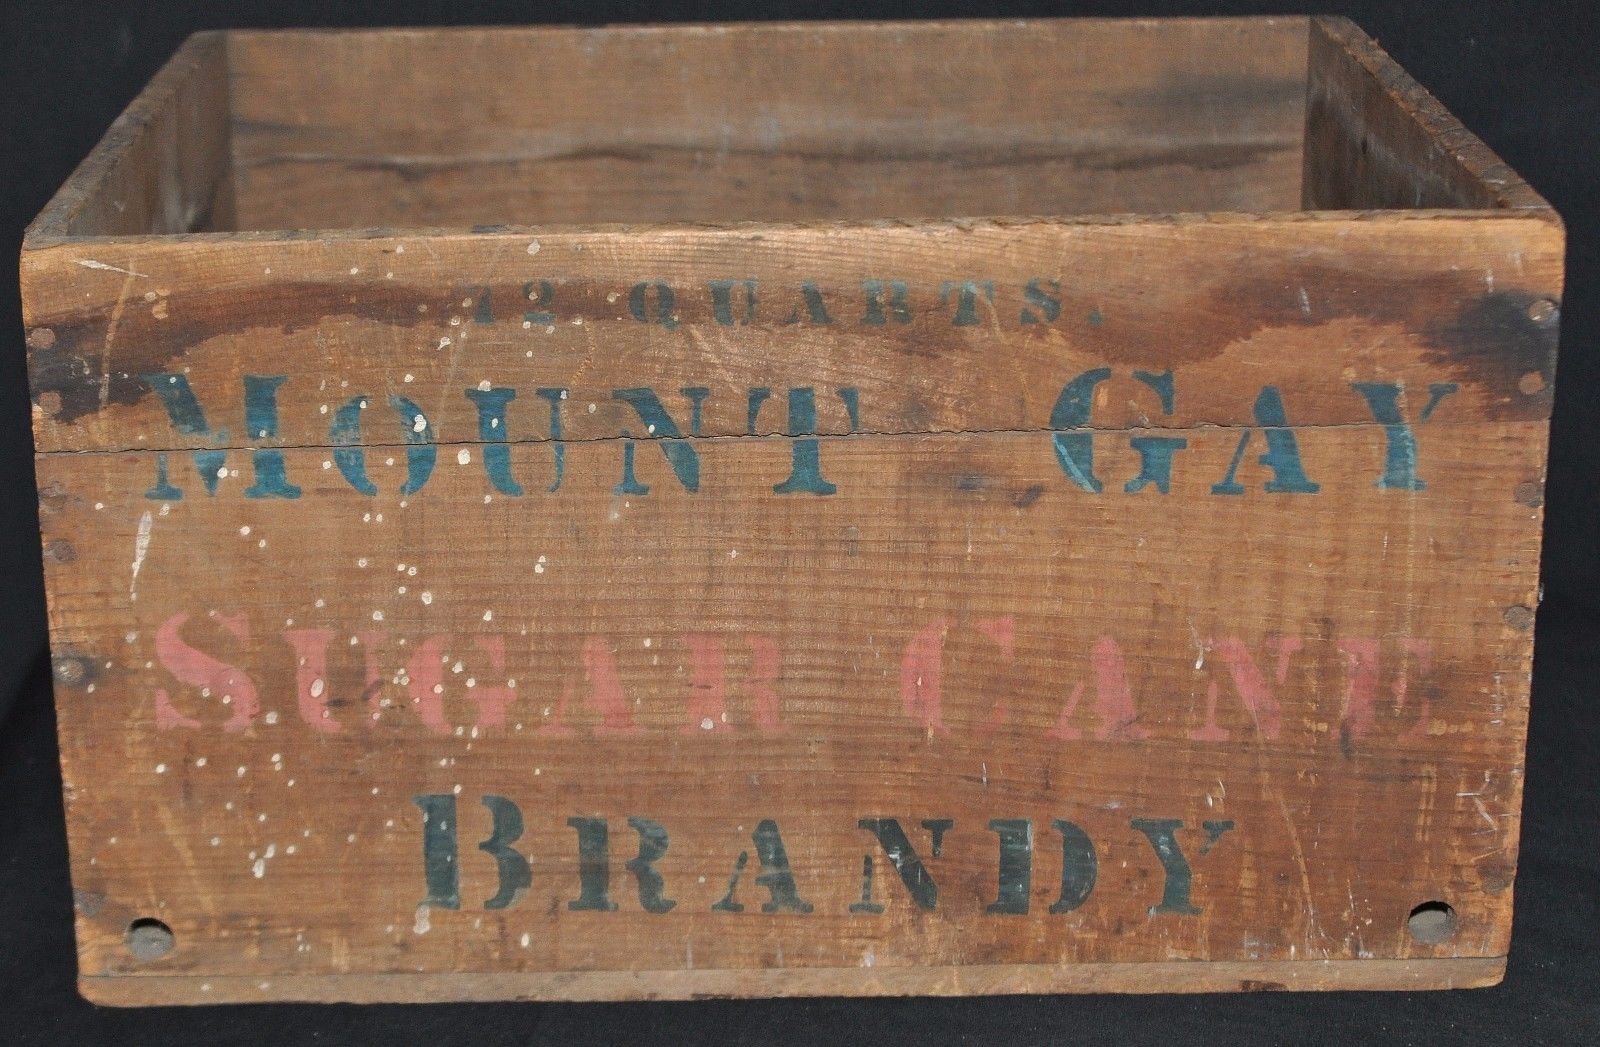 12 QUARTS.
MOUNT GAY
SUGAR CANE
BRANDY